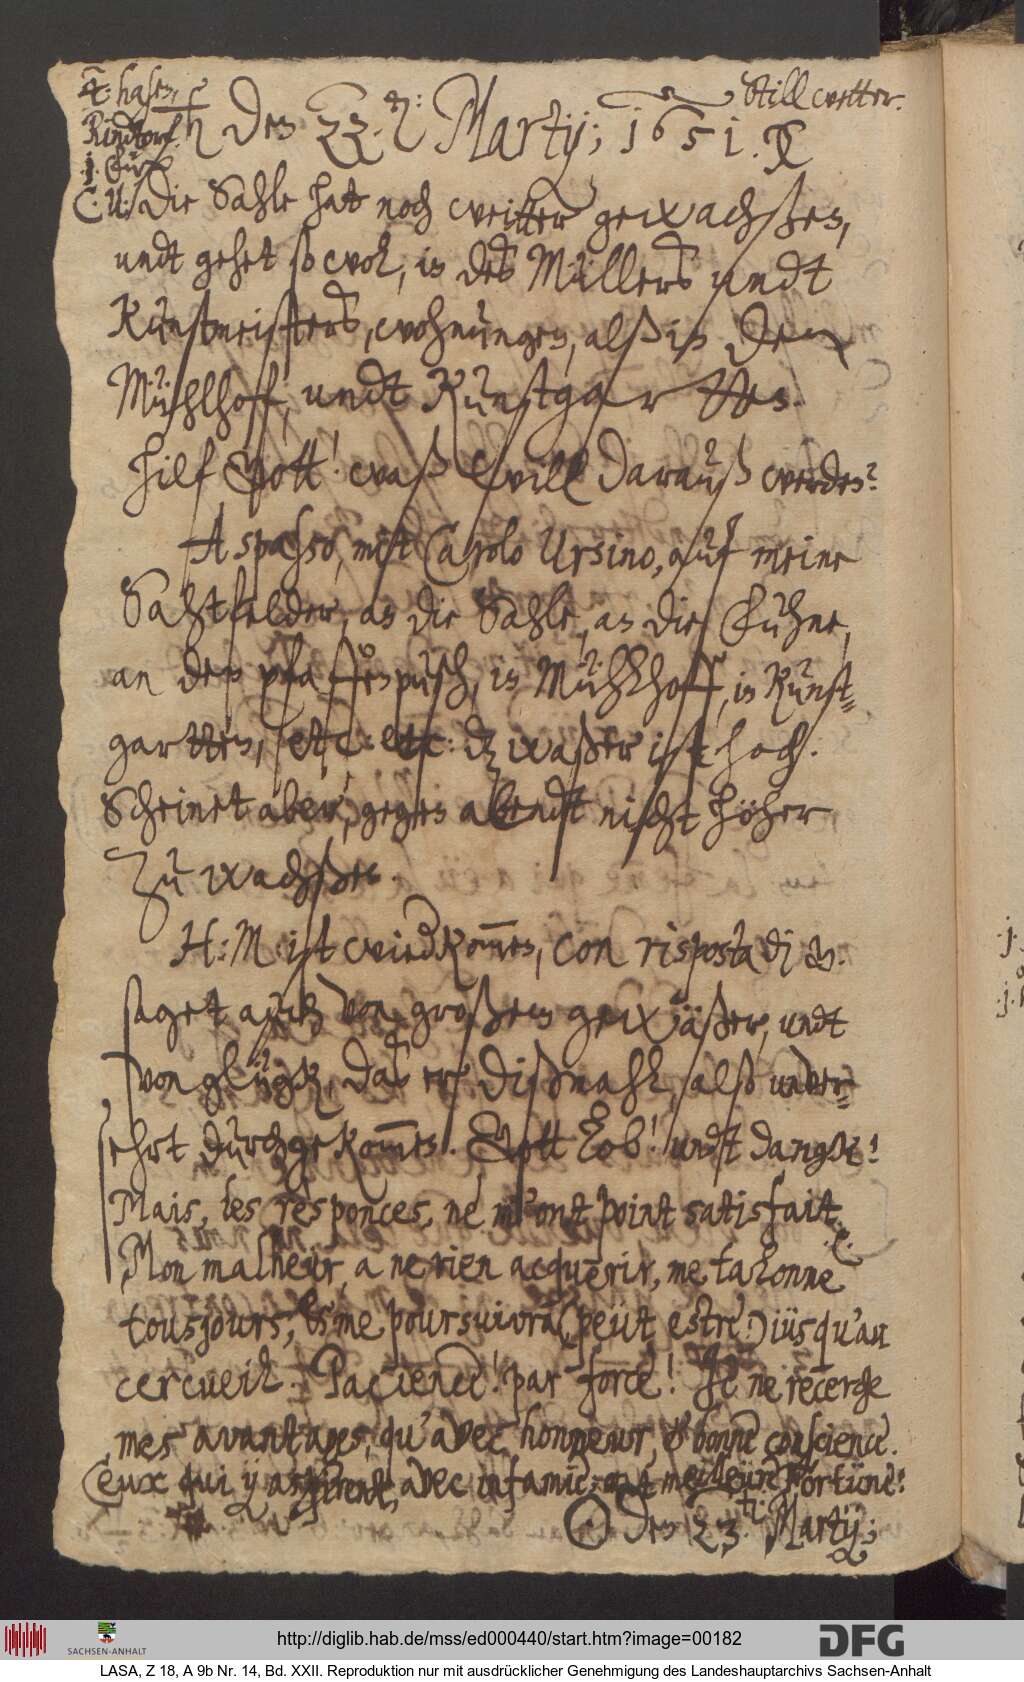 4: hasen,
Rindtorf.
C. U.
Still wetter.
♄ den 22. Martij; 1651.
Die Sahle hat noch weitter gewachßen,
undt gehet so wol, in des Müllers undt
Kunstmeisters, wohnungen, alß in den
Mühlhoff, undt Kunstgartten.
Hilf Gott! waß will darauß werden?
A spasso, mit Carolo Ursino, auf meine
Sahtfelder, an die Sahle, an die Fuhne,
an den pfaffenpusch, in Mühlhoff, in Kunst=
gartten, etc: etc: dz waßer ist hoch.
Scheinet aber, gegen abendt nicht höher
zu wachßen.
H: M: ist wiedkommen, con risposta di
saget auch von großem gewäßer, undt
von glügk, das er dißmahl, alß unver=
sehrt durchgekommen. Gott Lob! undt dangk!
Mais, les responces, ne m'ont point satisfait.
Mon malheur, a ne rien acquerir, me talonne
tousjours, & me poursuivra (peut estre:) iüsqu'au
cercueil. Pacience! par force! Je ne recerche
mes avantages, qu'avec honneur, & bonne conscience.
Ceux qui ÿ aspirent, avec infamie, ont meilleure Fortüne!
☉ den 23. Martij;
http://diglib.hab.de/mss/ed000440/start.htm?image=00182
SACHSEN-ANHALT
DFG
LASA, Z 18, A 9b Nr. 14, Bd. XXII. Reproduktion nur mit ausdrücklicher Genehmigung des Landeshauptarchivs Sachsen-Anhalt